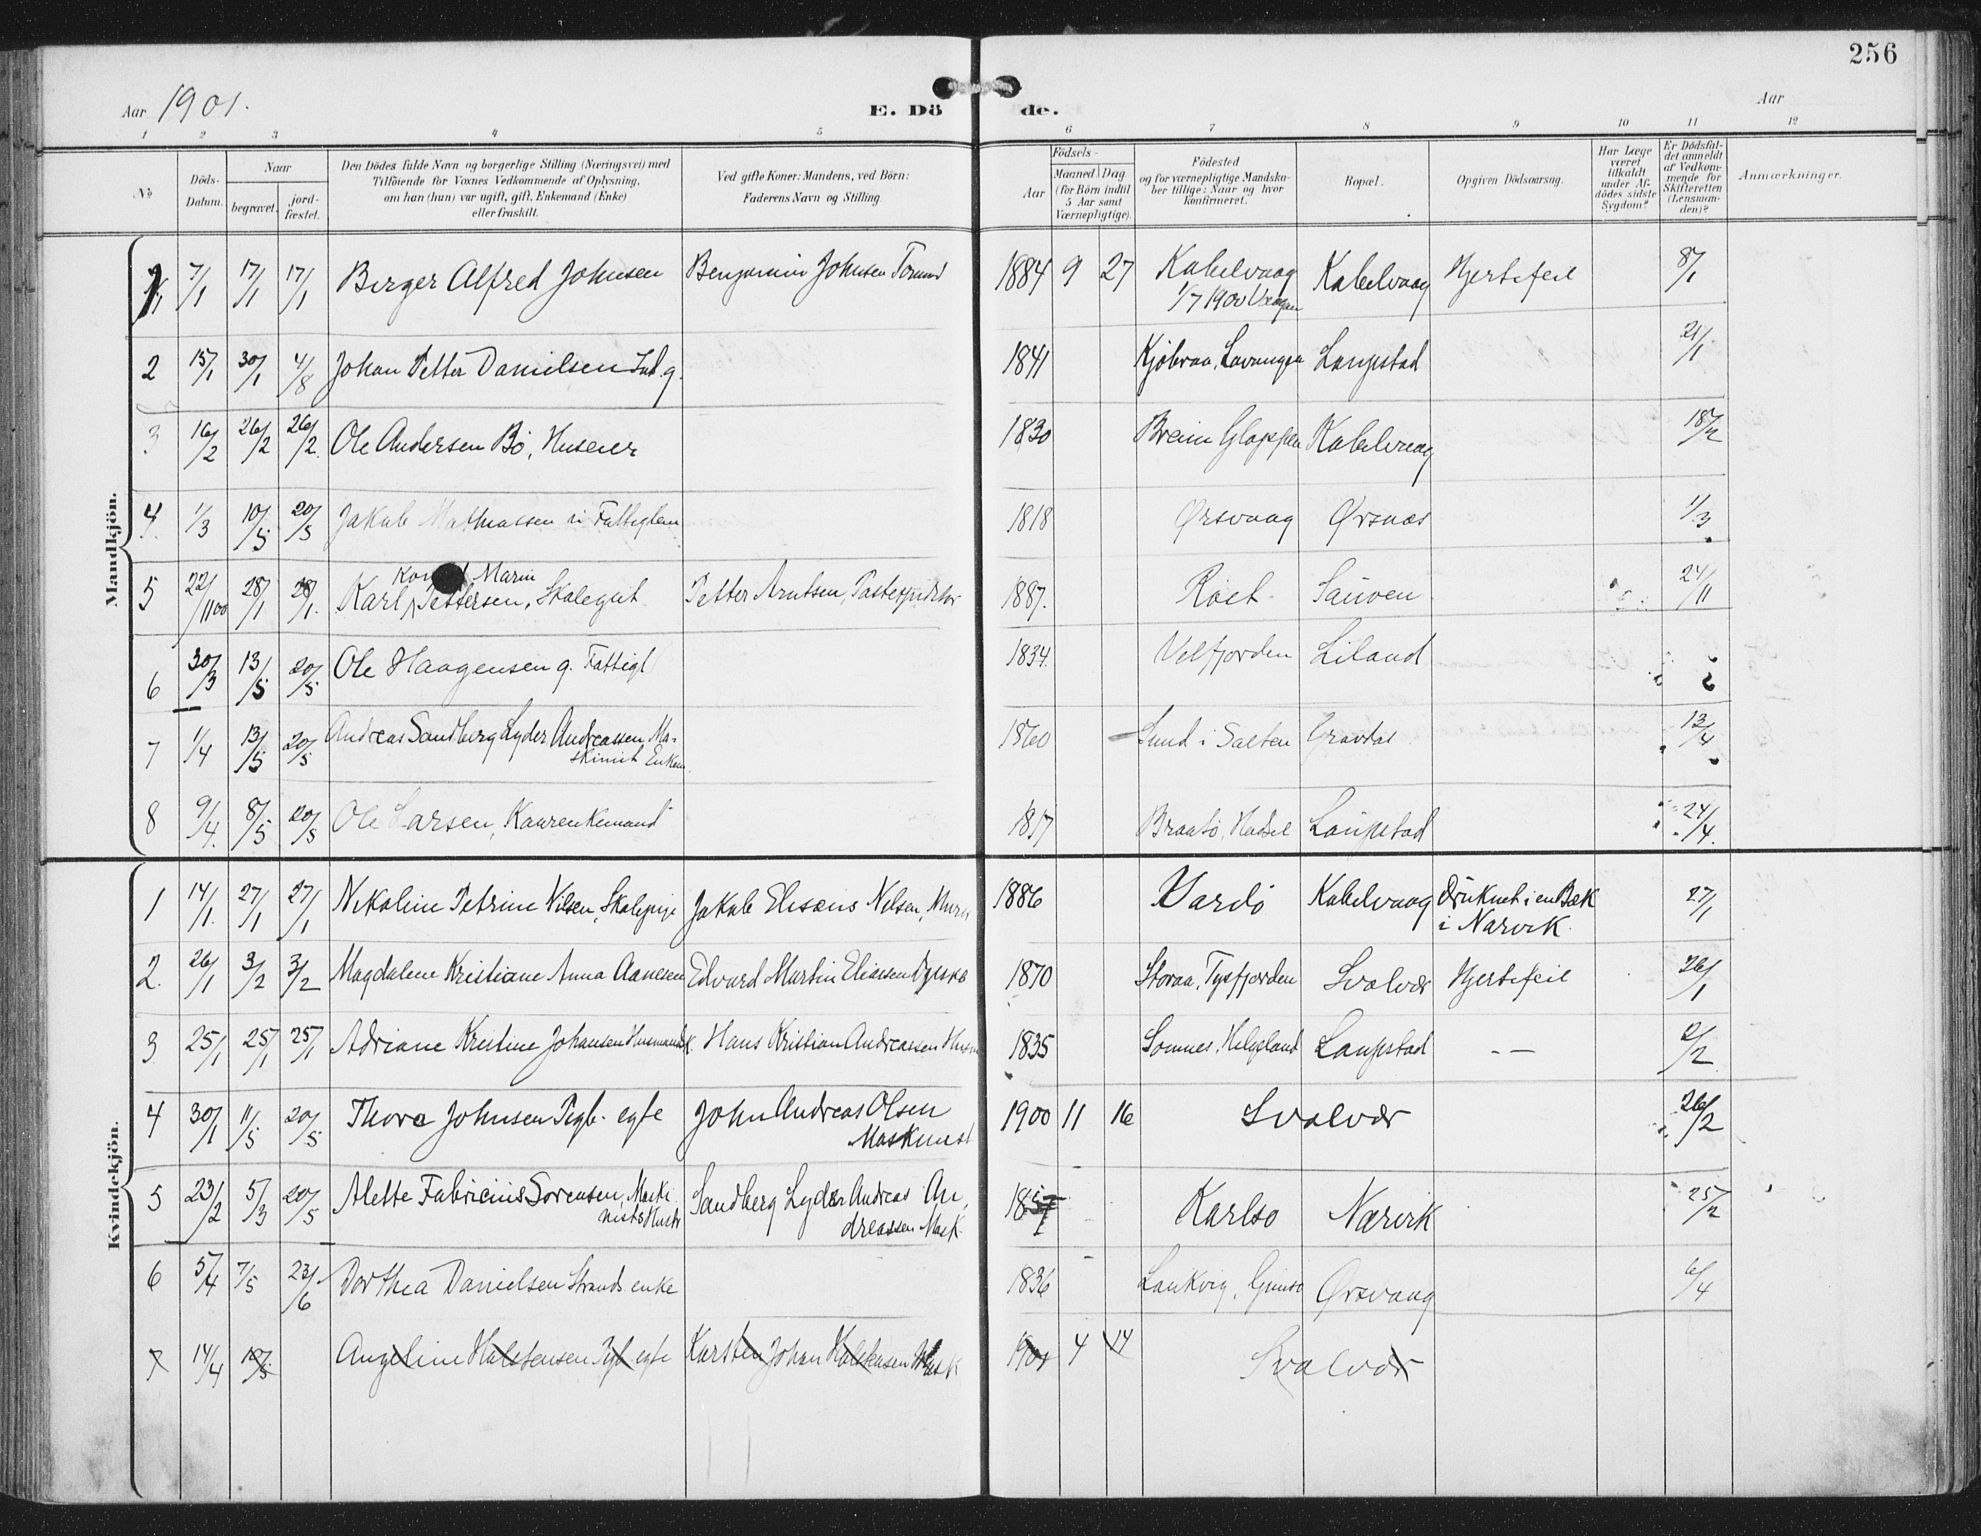 256
Aar 1901.
E. Dö de.
Aar
1 2 3 4 5 6 7 8 9 10 11 12
No
Döds-Datum.
Naar
begravet.
jord-fæstet.
Den Dödes fulde Navn og borgerlige Stilling (Næringsvei) med
Tilföiende for Voxnes Vedkommende af Oplysning,
om han (hun) var ugift, gift, Enkemand (Enke)
eller fraskilt.
Ved gifte Koner: Mandens, ved Börn:
Faderens Navn og Stilling
Födsels-
Aar
Maaned. Dag
(for Börn indtil
5 Aar samt
Værnepligtige).
Födested
og for værnepligtige Mandska-
ber tillige: Naar og hvor
konfirmeret.
Bopæl.
Opgiven Dödsaarsag.
Har Læge
været
tilkaldt
under Af-
dödes sidste
Sygdom?
Er Dödsfal-
det anmeldt
af Vedkom-
mende for
Skifteretten
(Lensman-
den)?
Anmærkninger.
Mandkjön.
1 7/1 17/1 17/1 Birger Alfred Johnsen Benjamin Johnsen 1884 9 27 Kabelvaag Kabelvaag Hjertefeil 8/1
1/7 1900 Vaagan
2 15/1 30/1 4/8 Johan Petter Danielsen Ind. g. 1841 Lavangen Laupstad 21/1
3 16/2 26/2 26/2. Ole Andersen Bö, Huseier 1830 Breim Kabelvaag 18/2
4 1/3 10/5 20/5 Jakob Mathiassen Fattiglem 1818 Ørsvaag Ørsnæs 1/3
Marin
5 22/1100 28/1 28/1. Karl Pettersen, Skolegut Petter Arntsen, Postexpeditör 1887. Röst Sauöen 24/11
6 30/3 13/5 20/5 Ole Haagensen g. Fattigl 1834. Velfjorden Liland
7 1/4 13/5 20/5 Andreas Sandberg Lyder Andreassen Ma-
skinist Enkem 1860 Sund i Salten Gravdal 13/4
8 9/4. 8/5 20/5 Ole Larsen, Kaarenkemand 1817 Hadsel Laupstad 24/4.
Kvindekjön.
1 14/1. 27/1 27/1 Nikoline Petrine Nilsen, Skolepige Jakob Eliseus Nilsen, Murer 1886 Vardö Kabelvaag Druknet i en Bæk
i Narvik. 27/1
2. 26/1 3/2 3/2 Magdalene Kristiane Anna Aanesen Edvard Martin Eliassen 1870 Storaa, Tysfjorden Svolvær Hjertefeil 26/1
3 25/1 25/1 25/1 Adriane Kristine Johansen Husmandsk. Hans Kristian Andreassen Husm 1835 Somnes, Helgeland Laupstad – – 2/2
4 30/1 11/5 20/5 Thora Johnsen Pigb. egte John Andreas Olsen
Maskinist 1900 11 16 Svolvær 26/2
5 23/2 5/3 20/5 Alette Fabricius Sörensen, Maski
nists Hustr Sandberg Lyder Andreas An,
dreassen Mask. 1857 Karlsö Narvik 25/2
6 5/4 7/5 23/6 Dorthea Danielsen Strands. enke 1836 Laukvig, Gimsö Ørsvaag 6/4
7 14/4 10/5. Angeline Halstensen Pgb egte Karsten Johan Halstensen Mask 1901 4 14 Svolvær